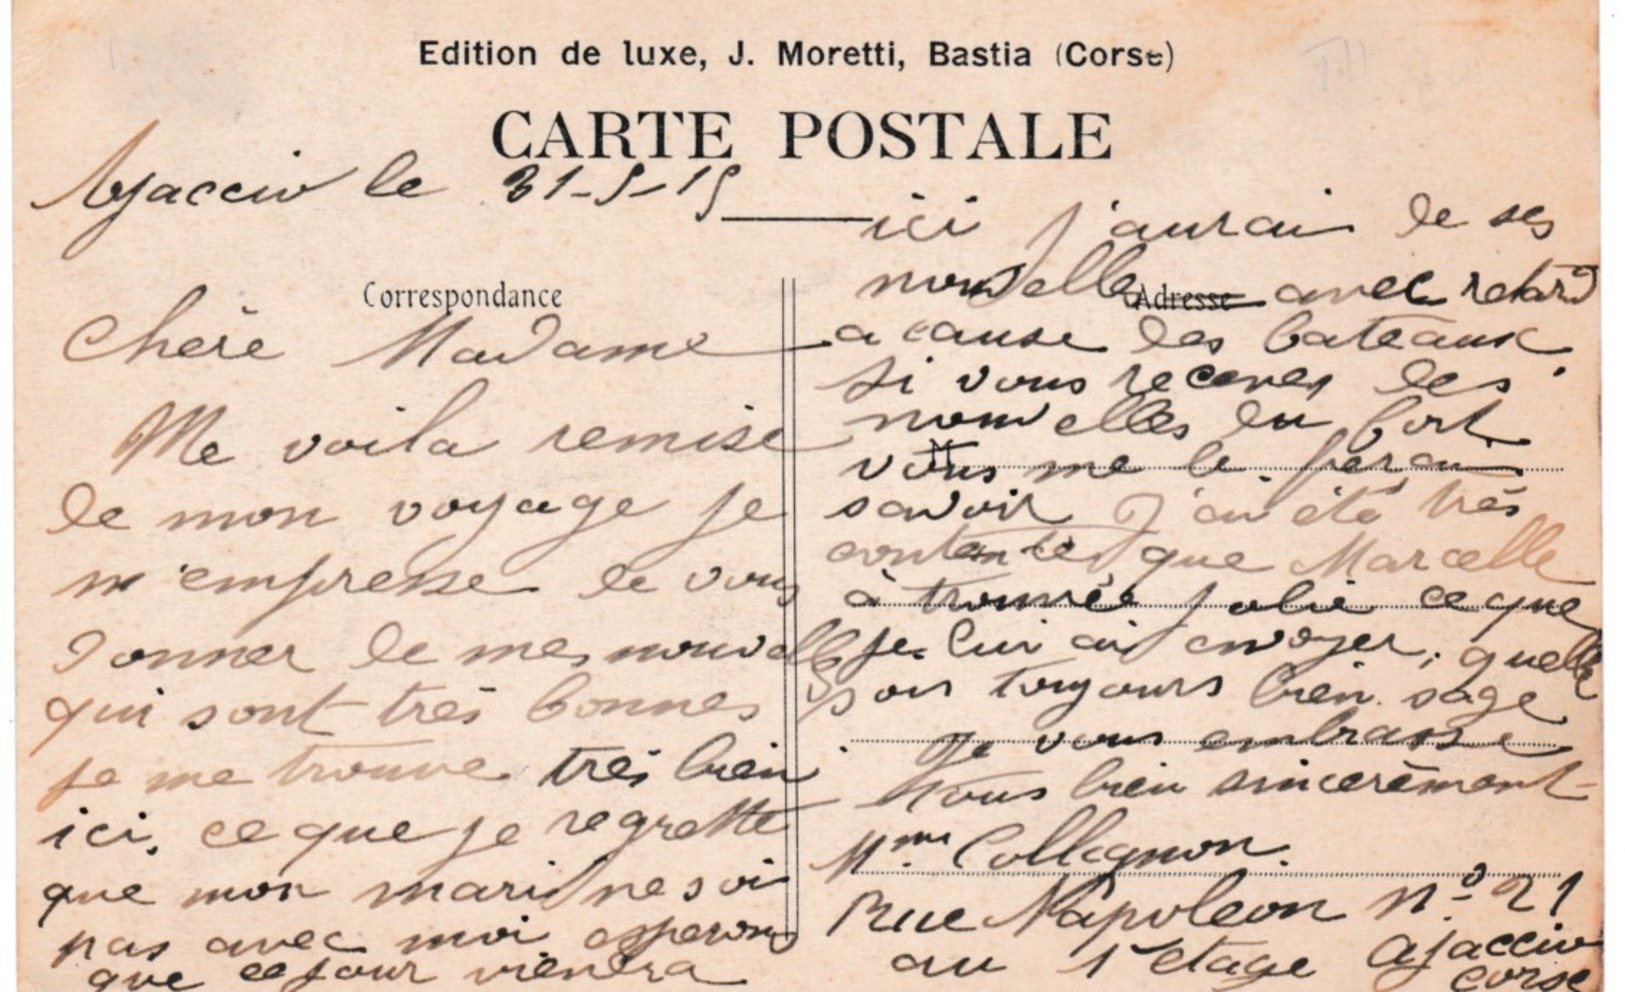 Edition de luxe, J. Moretti, Bastia (Corse)
CARTE POSTALE
Ajaccio le 31-5-15
Correspondance
Chère Madame
Me voila remise
de mon voyage je
m'empresse de vous
donner de mes nouvelles
qui sont très bonnes
je me trouve très bien
ici, ce que je regrette
que mon mari ne soi
pas avec moi esperons
que ce jour viendra
ici j'aurai de ses
nouvelle avec retard
Adresse
a cause des bateaux.
si vous recever des
nouvelles du fort
M
vous me le ferau
savoir J'ai été très
contente que Marcelle
à trouvée jolie ce que
je lui ai envoyer, quelle
soi toujours bien sage
je vous embrasse
tous bien sincerèment
Mme Collognon.
Rue Napoleon n° 21
au 1r etage ajaccio
corse